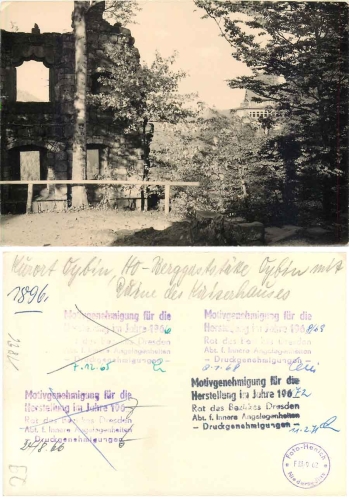 Kurort Oybin, HO-Berggaststätte Oybin mit
Ruine des Kaiserhauses
1896
1896
Motivgenehmigung für die
Herstellung im Jahre 1966
Rat des Bezirkes Dresden
Abt. f. Innere Angelegenheiten
- Druckgenehmigungen -
7.12.65
Motivgenehmigung für die
Herstellung im Jahre 1968
Rat des Bezirkes Dresden
Abt. f. Innere Angelegenheiten
- Druckgenehmigungen -
Motivgenehmigung für die
Herstellung im Jahre 1967
Rat des Bezirkes Dresden
Abt. f. Innere Angelegenheiten
- Druckgenehmigungen -
24/8.66
Motivgenehmigung für die
Herstellung im Jahre 1972
Rat des Bezirkes Dresden
Abt. f. Innere Angelegenheiten
- Druckgenehmigungen -
23